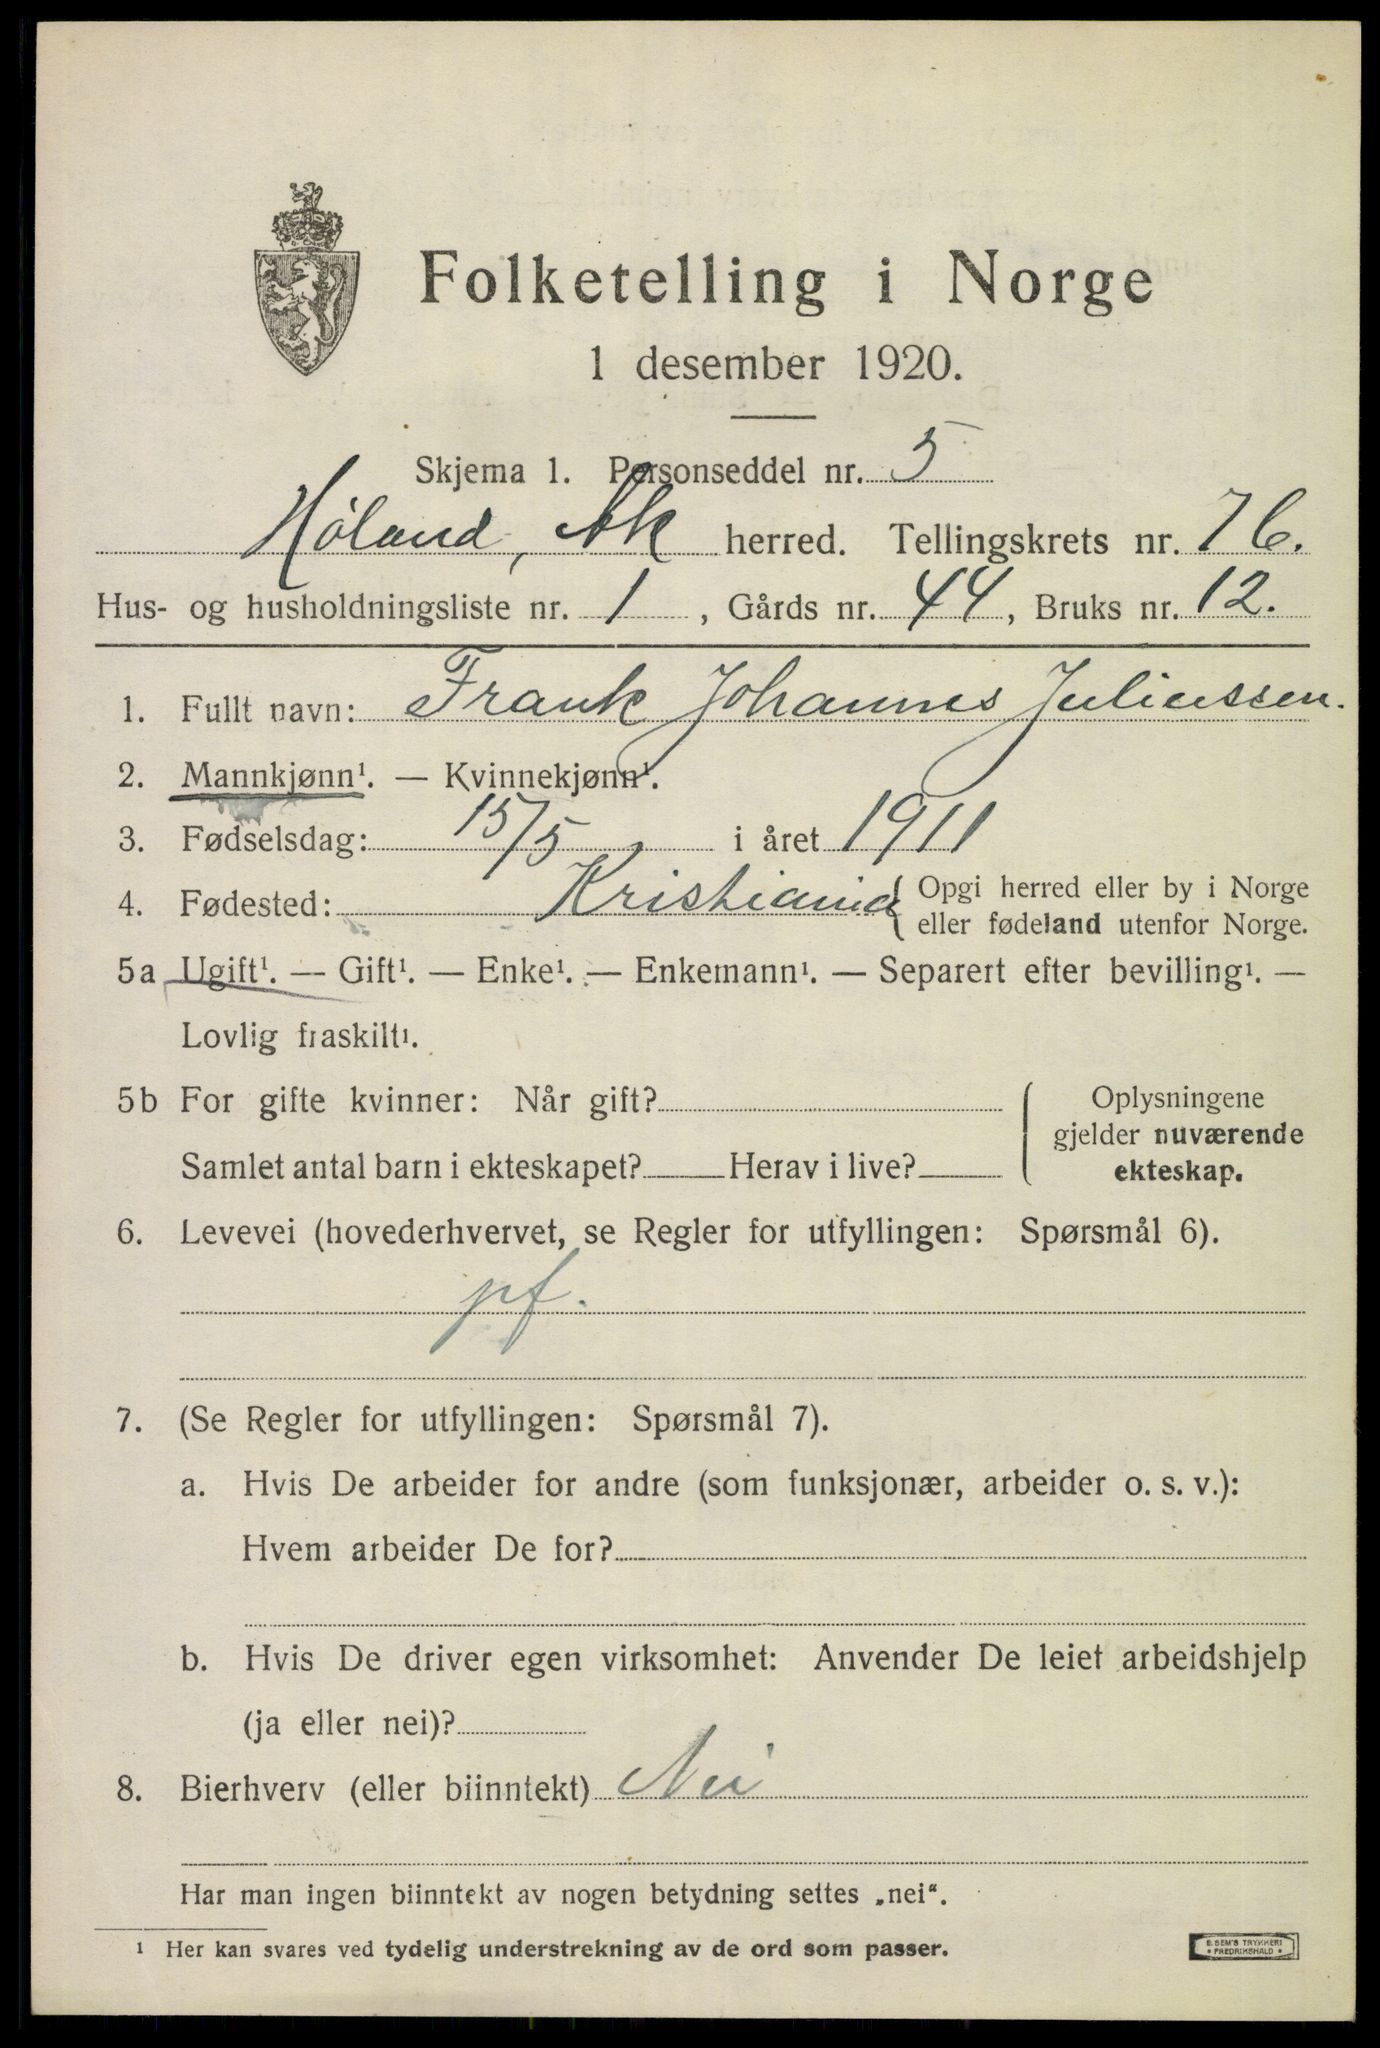 Folketelling i Norge
1 desember 1920.
Skjema 1. Personseddel nr. 5
Høland, Ak herred. Tellingskrets nr. 16.
Hus- og husholdningsliste nr. 1, Gårds nr. 44, Bruks nr. 12.
1. Fullt navn: Frank Johannes Juliussen.
2. Mannkjønn¹. — Kvinnekjønn¹.
3. Fødselsdag: 15/5 i året 1911
4. Fødested: Kristiania { Opgi herred eller by i Norge
eller fødeland utenfor Norge.
5a Ugift¹. — Gift¹. — Enke¹. — Enkemann¹. — Separert efter bevilling¹. —
Lovlig fraskilt¹.
5b For gifte kvinner: Når gift?
Samlet antal barn i ekteskapet? Herav i live?
Oplysningene
gjelder nuværende
ekteskap.
6. Levevei (hovederhvervet, se Regler for utfyllingen: Spørsmål 6).
pf.
7. (Se Regler for utfyllingen: Spørsmål 7).
a. Hvis De arbeider for andre (som funksjonær, arbeider o. s. v.):
Hvem arbeider De for?
b. Hvis De driver egen virksomhet: Anvender De leiet arbeidshjelp
(ja eller nei)?
8. Bierhverv (eller biinntekt) Nei
Har man ingen biinntekt av nogen betydning settes „nei“.
¹ Her kan svares ved tydelig understrekning av de ord som passer.
E. SEM'S TRYKKERI
• FREDRIKSHALD •